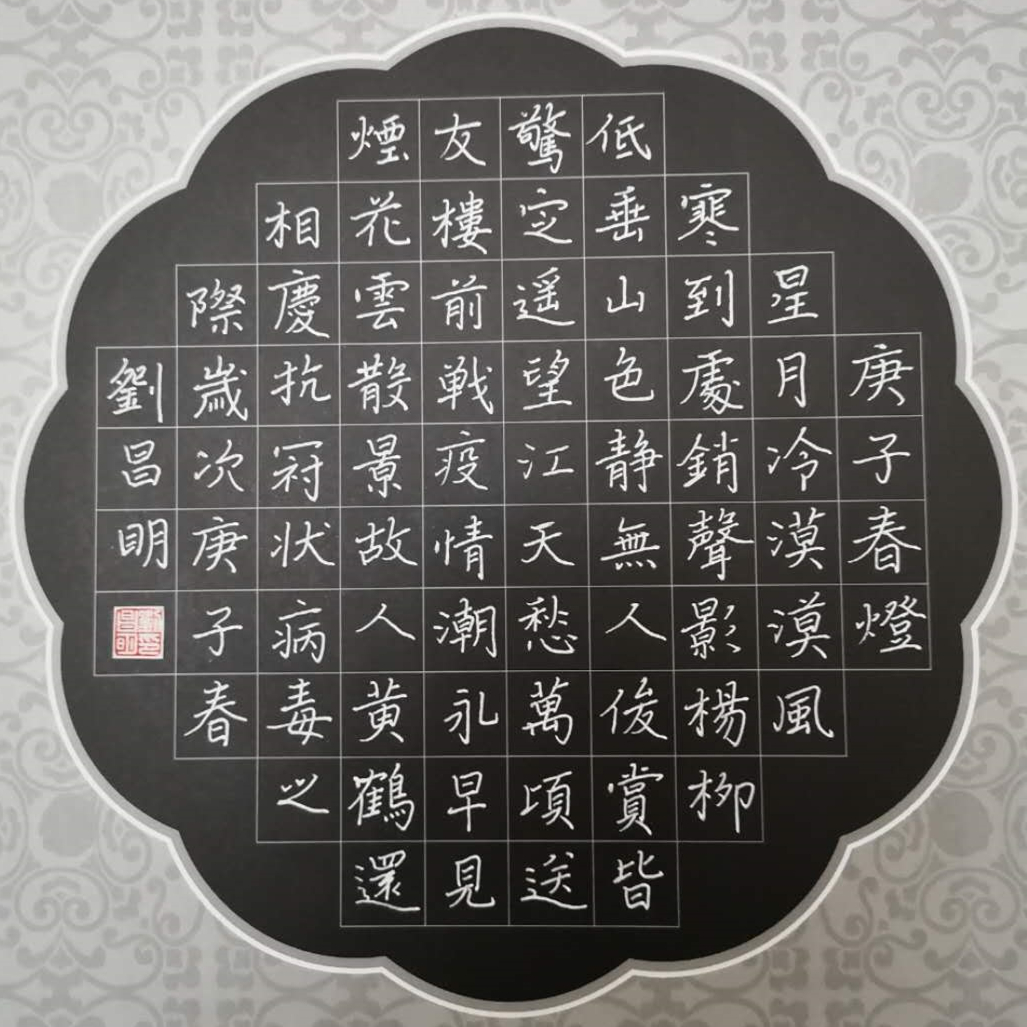 庚子春燈
星月冷漠漠風
寒到處銷聲影楊柳
低垂山色靜無人俊賞皆
驚定遥望江天愁萬頃送
友樓前戦疫情潮永早見
煙花雲散景故人黄鶴還
相慶抗冠状病毒之
際歲次庚子春
劉昌明